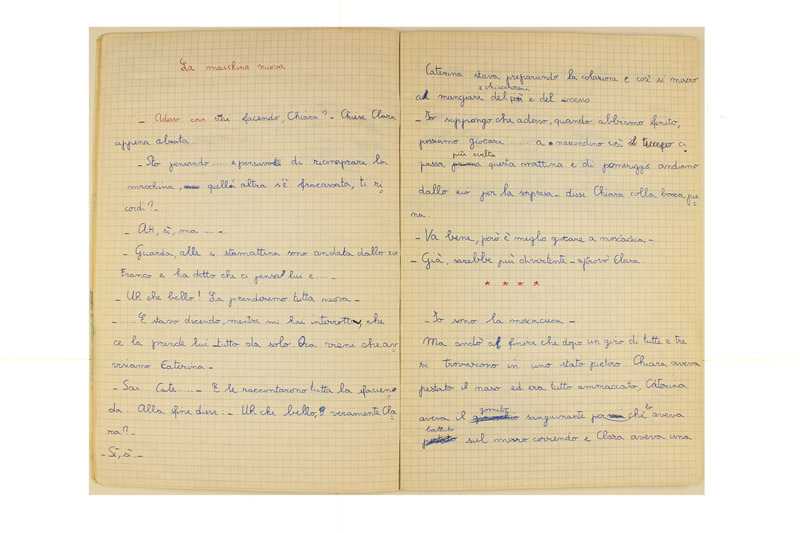 La macchina nuova
- Adesso cosa stai facendo, Chiara? - Chiese Clara
appena alzata
- Sto pensando .... e pensavo di ricomprare la
macchina, quell'altra s'è fracassata, ti ri
cordi? -
- Ah, sì, ma ... -
- Guarda, alle 4 stamattina sono andata dallo zio
Franco e ha detto che ci pensa lui e .... -
- Uh che bello! La prenderemo tutta nuova -
- .... E stavo dicendo, mentre mi hai interrotto, che
ce la prende lui tutto da solo. Ora vieni che av
visiamo Caterina. -
- Sai Cate ..... - E le raccontarono tutta la faccen
da. Alla fine disse: - Uh che bello, veramente Cla
ra? -
- Sì, sì -
Caterina stava preparando la colazione e così si misero
a mangiare del tè e del cocco
- Io suppongo che adesso, quando abbiamo finito,
possiamo giocare ..... a nascondino così il tempo ci
passa più svelto questa mattina e di pomeriggio andiamo
dallo zio per la sorpresa - disse Chiara colla bocca pie
na.
- Va bene, però è meglio giocare a moscacieca -
- Già, sarebbe più divertente - approvò Clara.
* * * *
- Io sono la moscacieca -
Ma andò a finire che dopo un giro di tutte e tre
si trovarono in uno stato pietoso. Chiara aveva
pestato il naso ed era tutto ammaccato, Caterina
aveva il gomito sanguinante perchè lo aveva
battuto sul muro correndo e Clara aveva una